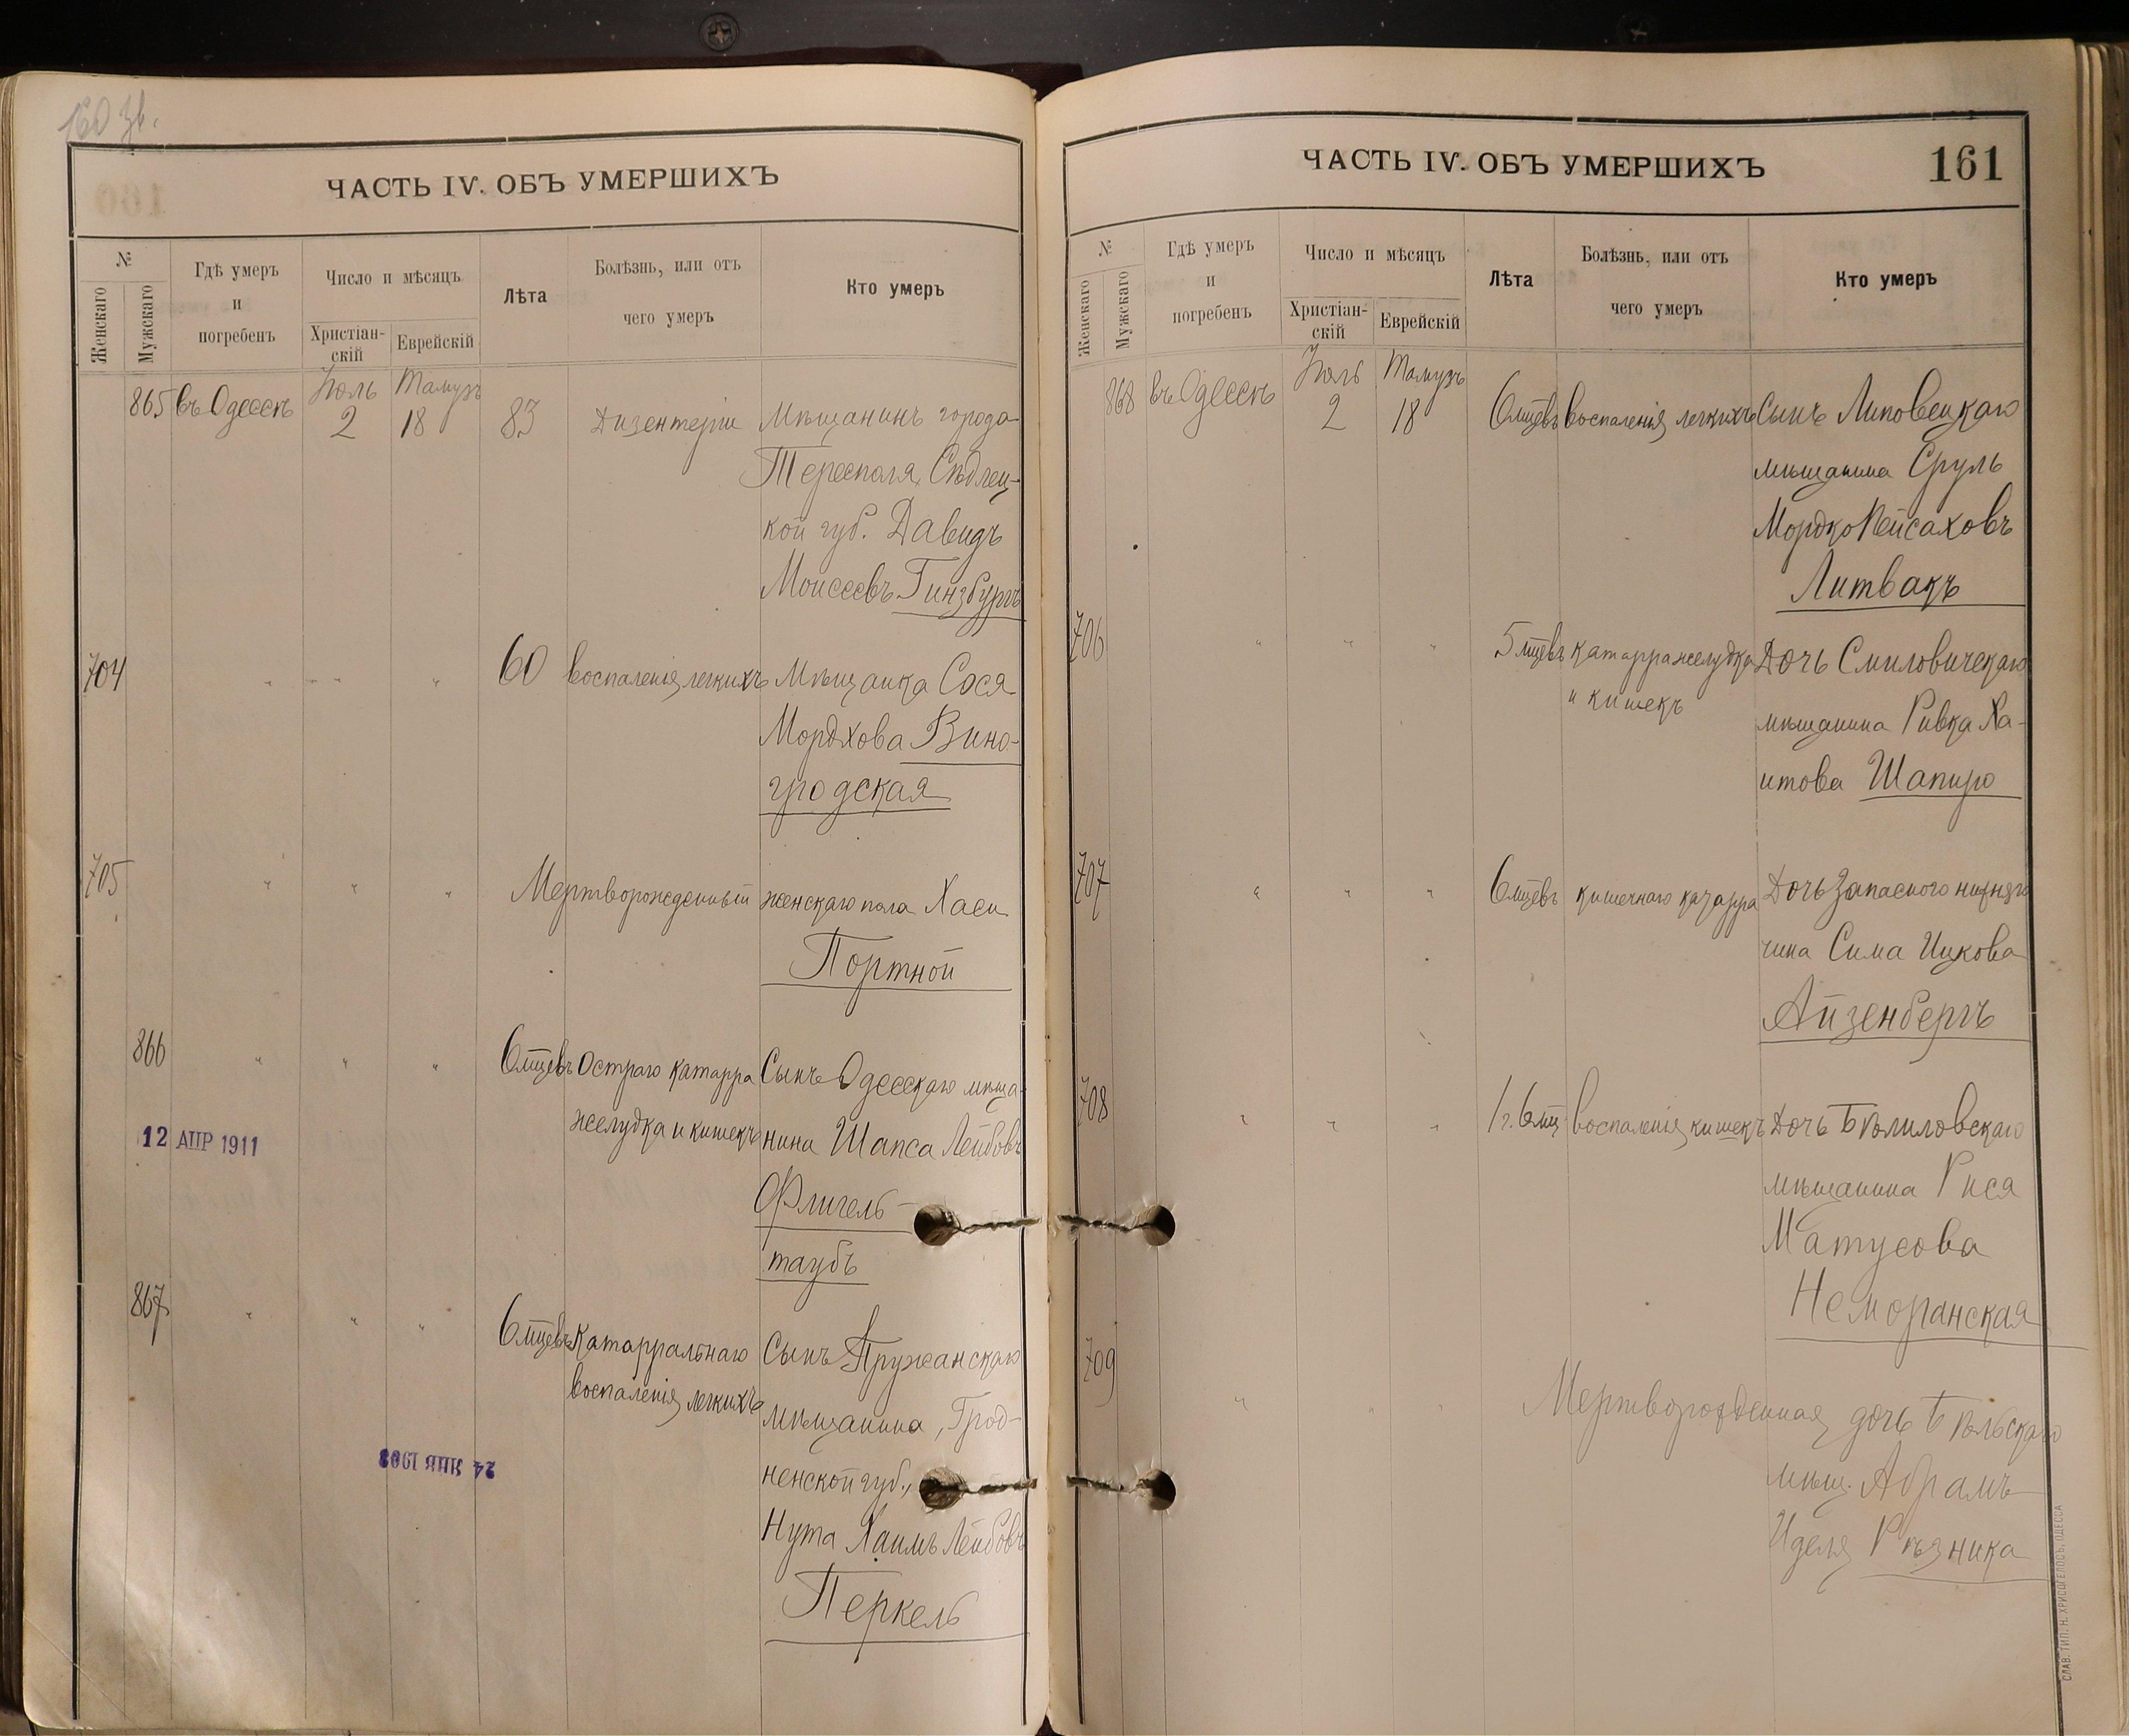 160 зв.
ЧАСТЬ IV. ОБЪ УМЕРШИХЪ
№
Женскаго
Мужскаго
Гдѣ умеръ
и
погребенъ
Число и мѣсяцъ
Христіан-
скій
Еврейскій
Лѣта
Болѣзнь, или отъ
чего умеръ
Кто умеръ
865 въ Одессѣ Іюль 2 Тамузъ 18 83 Дизентеріи Мѣщанинъ города
Тересполя, Сѣдлец-
кой губ. Давидъ
Моисеевъ Гинзбургъ
704 " " " 60 воспаленія легкихъ Мѣщанка Сося
Мордхова Вино-
градская
705 " " " Мертворожденный женскаго пола Хаси
Портной
866 " " " 6 мцевъ Остраго катарра Сынъ Одесскаго мѣща-
желудка и кишекъ нина Шапса Лейбовъ
12 АПР 1911
Флигель-
таубъ
867 " " " 6 мцевъ Катарральнаго Сынъ Пружанскаго
воспаленія легкихъ мѣщанина, Грод-
ненской губ.,
24 ЯНВ 1908
Нута Хаимъ Лейбовъ
Перкель
ЧАСТЬ IV. ОБЪ УМЕРШИХЪ
161
№
Женскаго
Мужскаго
Гдѣ умеръ
и
погребенъ
Число и мѣсяцъ
Христіан-
скій
Еврейскій
Лѣта
Болѣзнь, или отъ
чего умеръ
Кто умеръ
868 въ Одессѣ Іюль 2 Тамузъ 18 6 мцевъ воспаленія легкихъ Сынъ Липовецкаго
мѣщанина Сруль
Мордко Пейсаховъ
Литвакъ
706 " " " 5 мцевъ катарра желудка Дочь Смиловичскаго
и кишекъ
мѣщанина Ривка Ха-
имова Шапиро
707 " " " 6 мцевъ кишечнаго катарра Дочь Запаснаго нижняго
чина Сима Ицкова
Айзенбергъ
708 " " " 1 г. 6 мц воспаленія кишекъ Дочь
мѣщанина Рися
Матусова
Неморанская
709 " " " Мертворожденная дочь
мѣщ. Абрамъ
Иделя Рѣзника
СЛАВ. ТИП. Н. ХРИСОГЕЛОСЪ, ОДЕССА